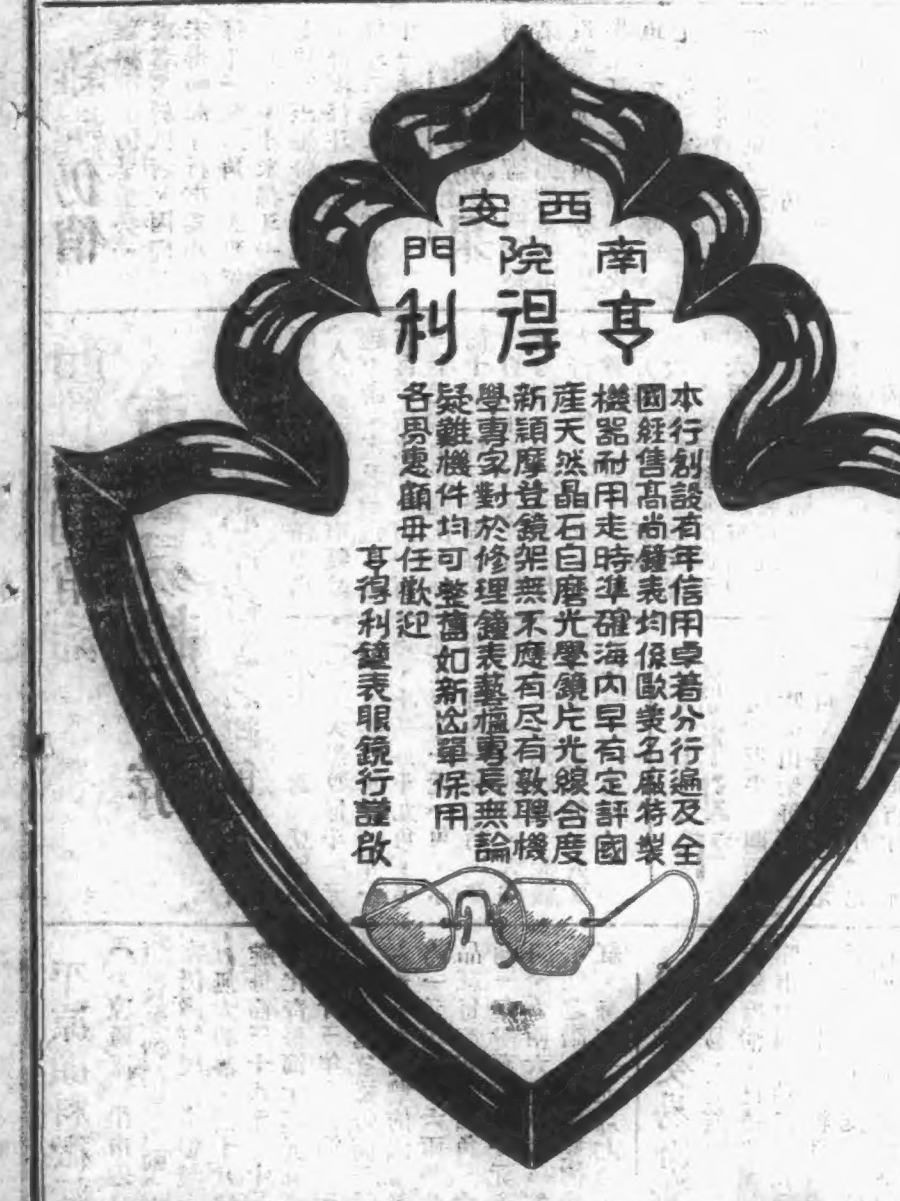 西安
南院門
亨得利
本行創設有年信用卓著分行遍及全
國經售高尚鐘表均係歐美名廠特製
機器耐用走時準確海內早有定評國
產天然晶石自磨光學鏡片光線合度
新穎摩登鏡架無不應有尽有敦聘機
學專家對於修理鐘表藝術專長無論
疑難機件均可整舊如新出單保用
各界惠顧毋任歡迎
亨得利鐘表眼鏡行謹啟